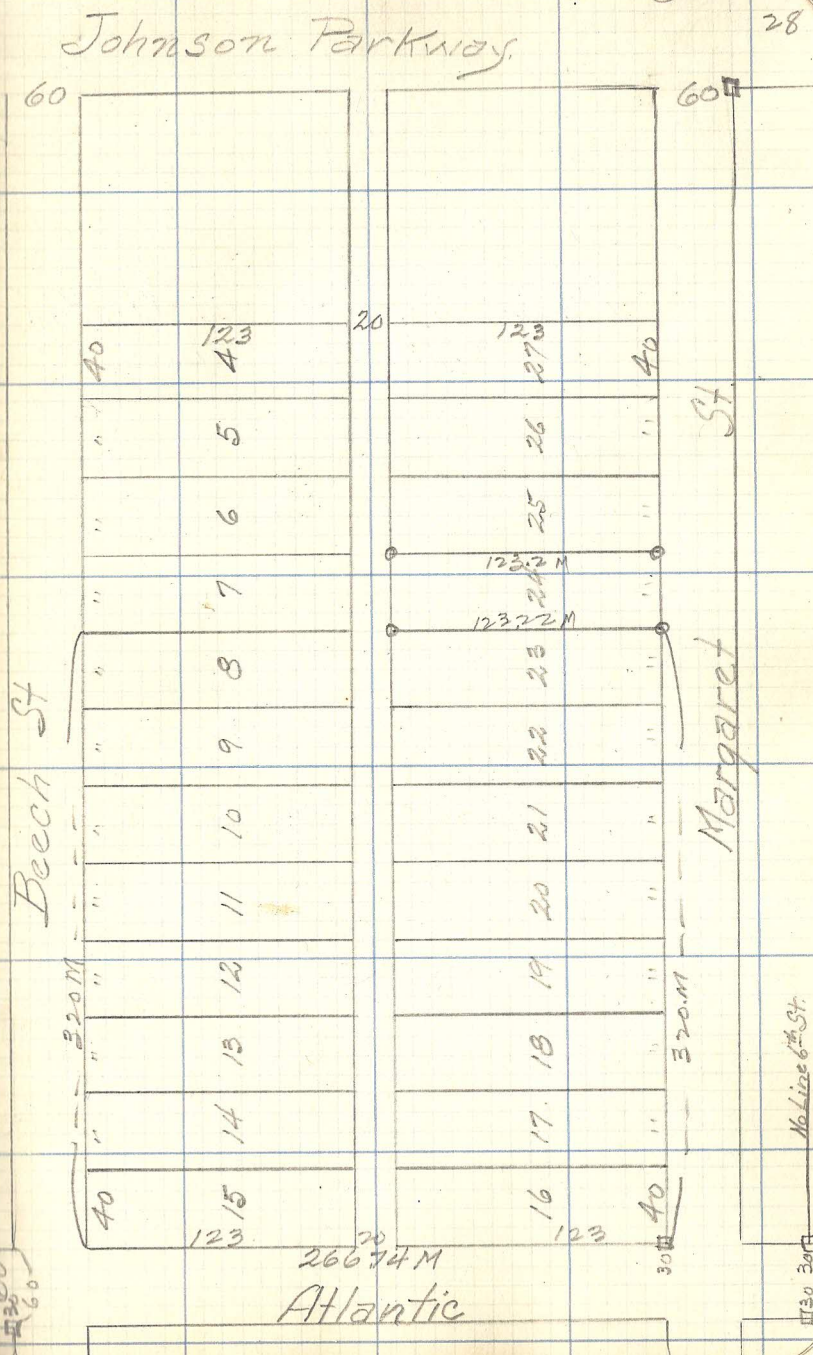 28
Johnson Parkway.
60
60
20
123
123
40
4
27
40
"
5
26
"
"
6
25
"
123.2 M
"
7
24
"
123.22 M
"
8
23
"
"
9
22
"
"
10
21
"
"
11
20
"
"
12
19
"
"
13
18
"
"
14
17.
"
40
15
16
40
123
20
123
266 74 M
Atlantic
Beech St
320 M
Margaret St
320.M
No Line 6th St.
30
30
30
30
60